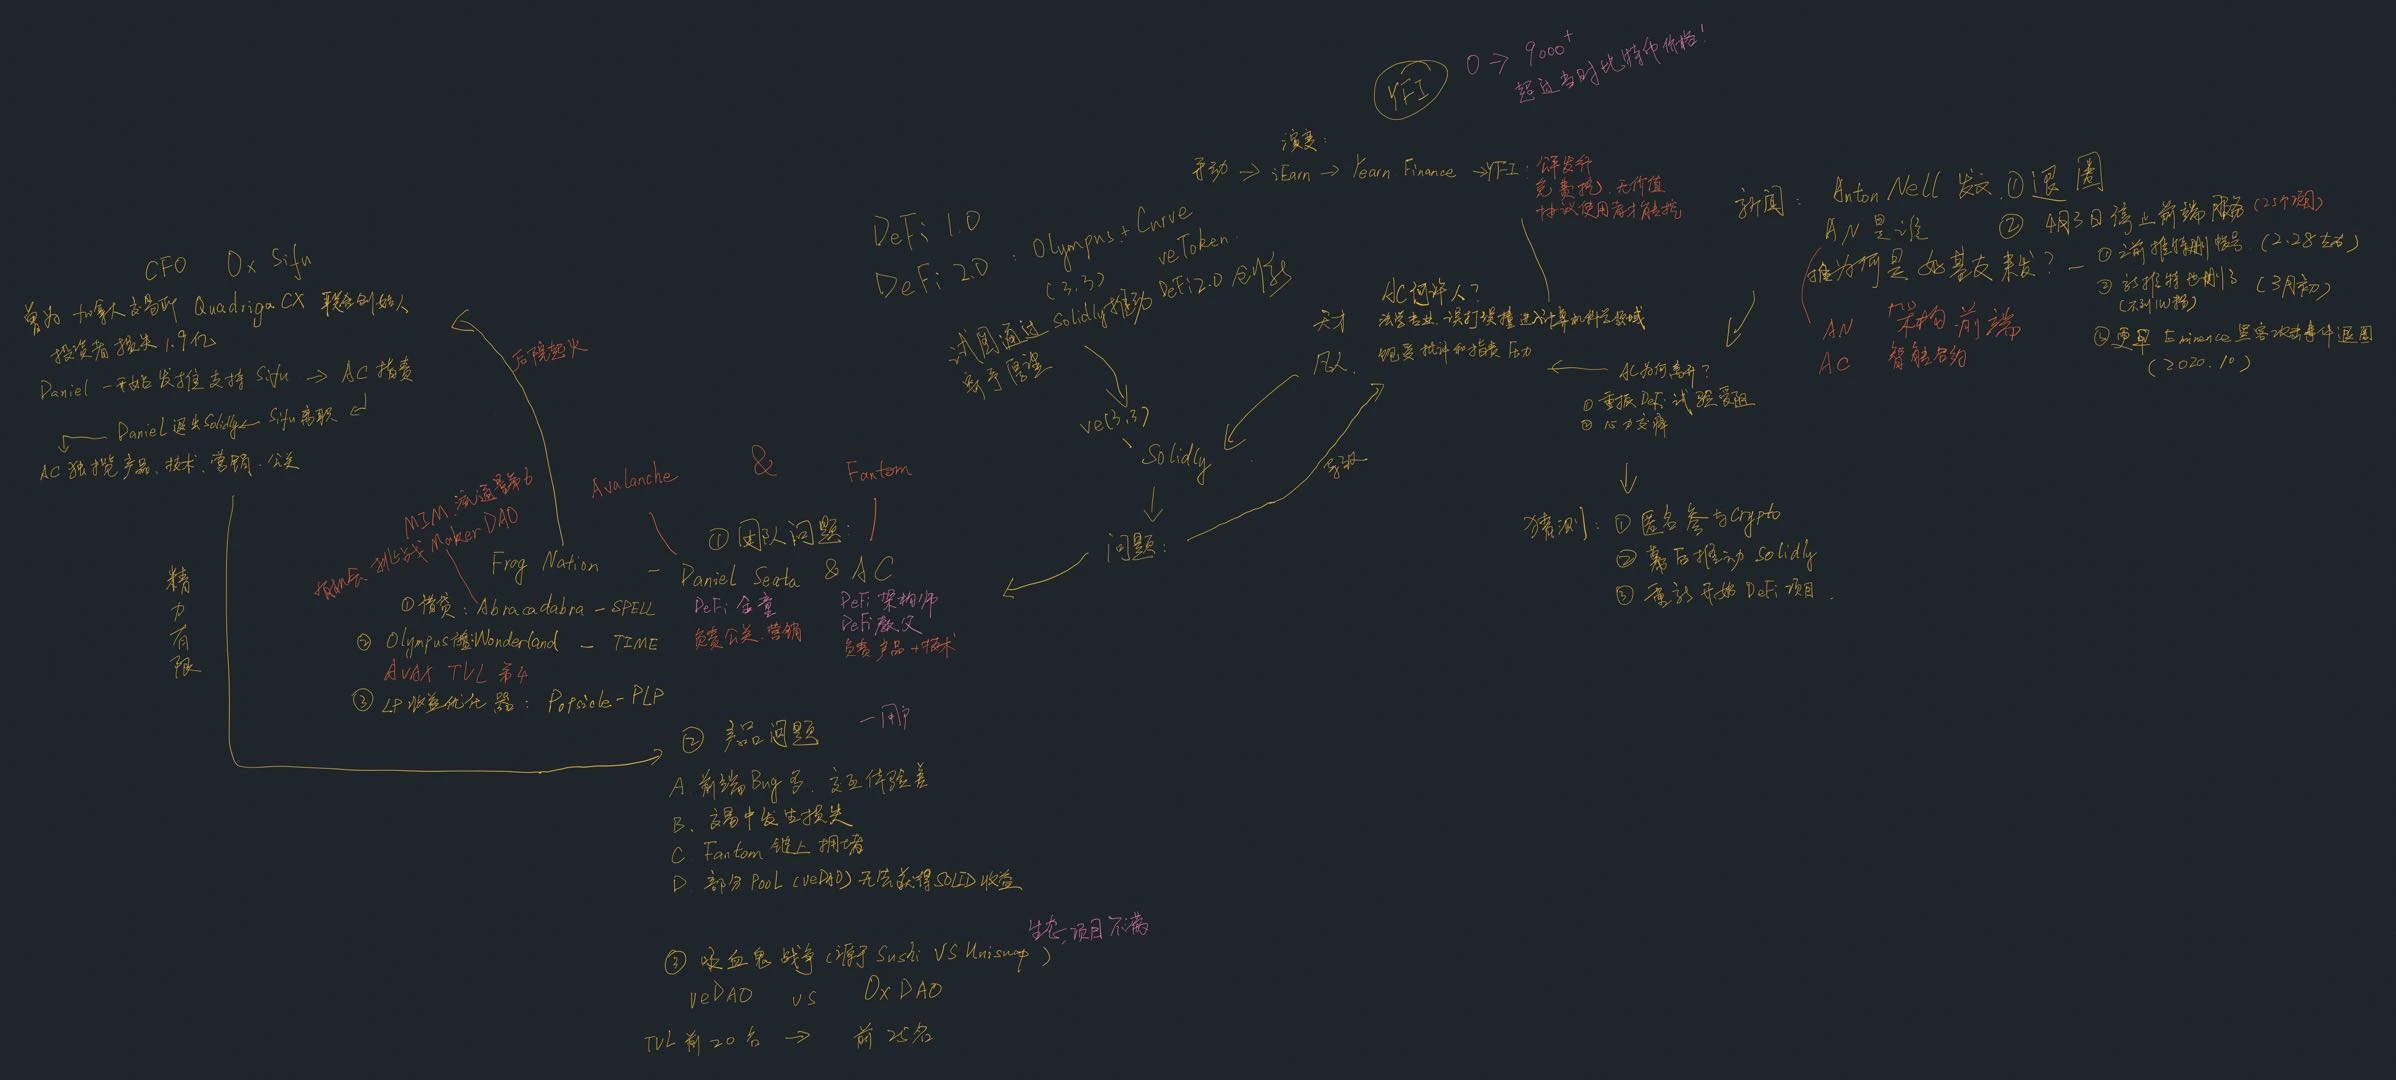 YFI
0 → 9000+
超过当时比特币价格!
演变:
手动 → iEarn → Yearn Finance → YFI:
公平发行
免费挖、无价值
协议使用者才能挖
新闻: Anton Nell 发文 ① 退圈
② 4月3日停止前端服务 (25个项目)
AN是谁
推为何是好基友来发? —
① 之前推特删帐号 (2.28左右)
② 新推特也删了 (3月初)
③ 更早 Eminence 黑客攻击事件退圈
(2020.10)
AN 架构前端
AC 智能合约
DeFi 1.0
DeFi 2.0 : Olympus + Curve
(3,3) veToken
试图通过 Solidly 推动 DeFi2.0 创新
ve(3,3)
Solidly
问题:
导致
AC何许人?
天才
法学专业、误打误撞进入计算机科学领域
凡人
饱受批评和指责压力
AC为何离开?
① 重振DeFi试验受阻
② 心力交瘁
猜测: ① 匿名参与Crypto
② 幕后推动 Solidly
③ 重新开始 DeFi 项目.
CFO 0x Sifu
曾为加拿大交易所 Quadriga CX 联合创始人
投资者损失1.9亿
Daniel 一开始发推支持 Sifu → AC 指责
Daniel 退出Solidly ← Sifu离职
AC 独揽产品、技术、营销、公关
后院起火
精力有限
Avalanche & Fantom
① 团队问题:
MIM 流通量第
挑战 MakerDAO
Frog Nation — Daniel Sesta & AC
DeFi 金童
负责公关、营销
DeFi 架构师
DeFi 教父
负责产品+技术
① 借贷: Abracadabra — SPELL
② Olympus Wonderland — TIME
AVAX TVL 第4
③ LP收益优化器: Popsicle — PLP
② 产品问题 — 用户
A. 前端Bug多、交互体验差
B、交易中发生损失
C. Fantom 链上拥堵
D. 部分 Pool (veDAO) 无法获得SOLID收益
生态项目不满
③ 吸血鬼战争 (源于 Sushi VS Uniswap)
veDAO vs 0xDAO
TVL 前20名 → 前25名